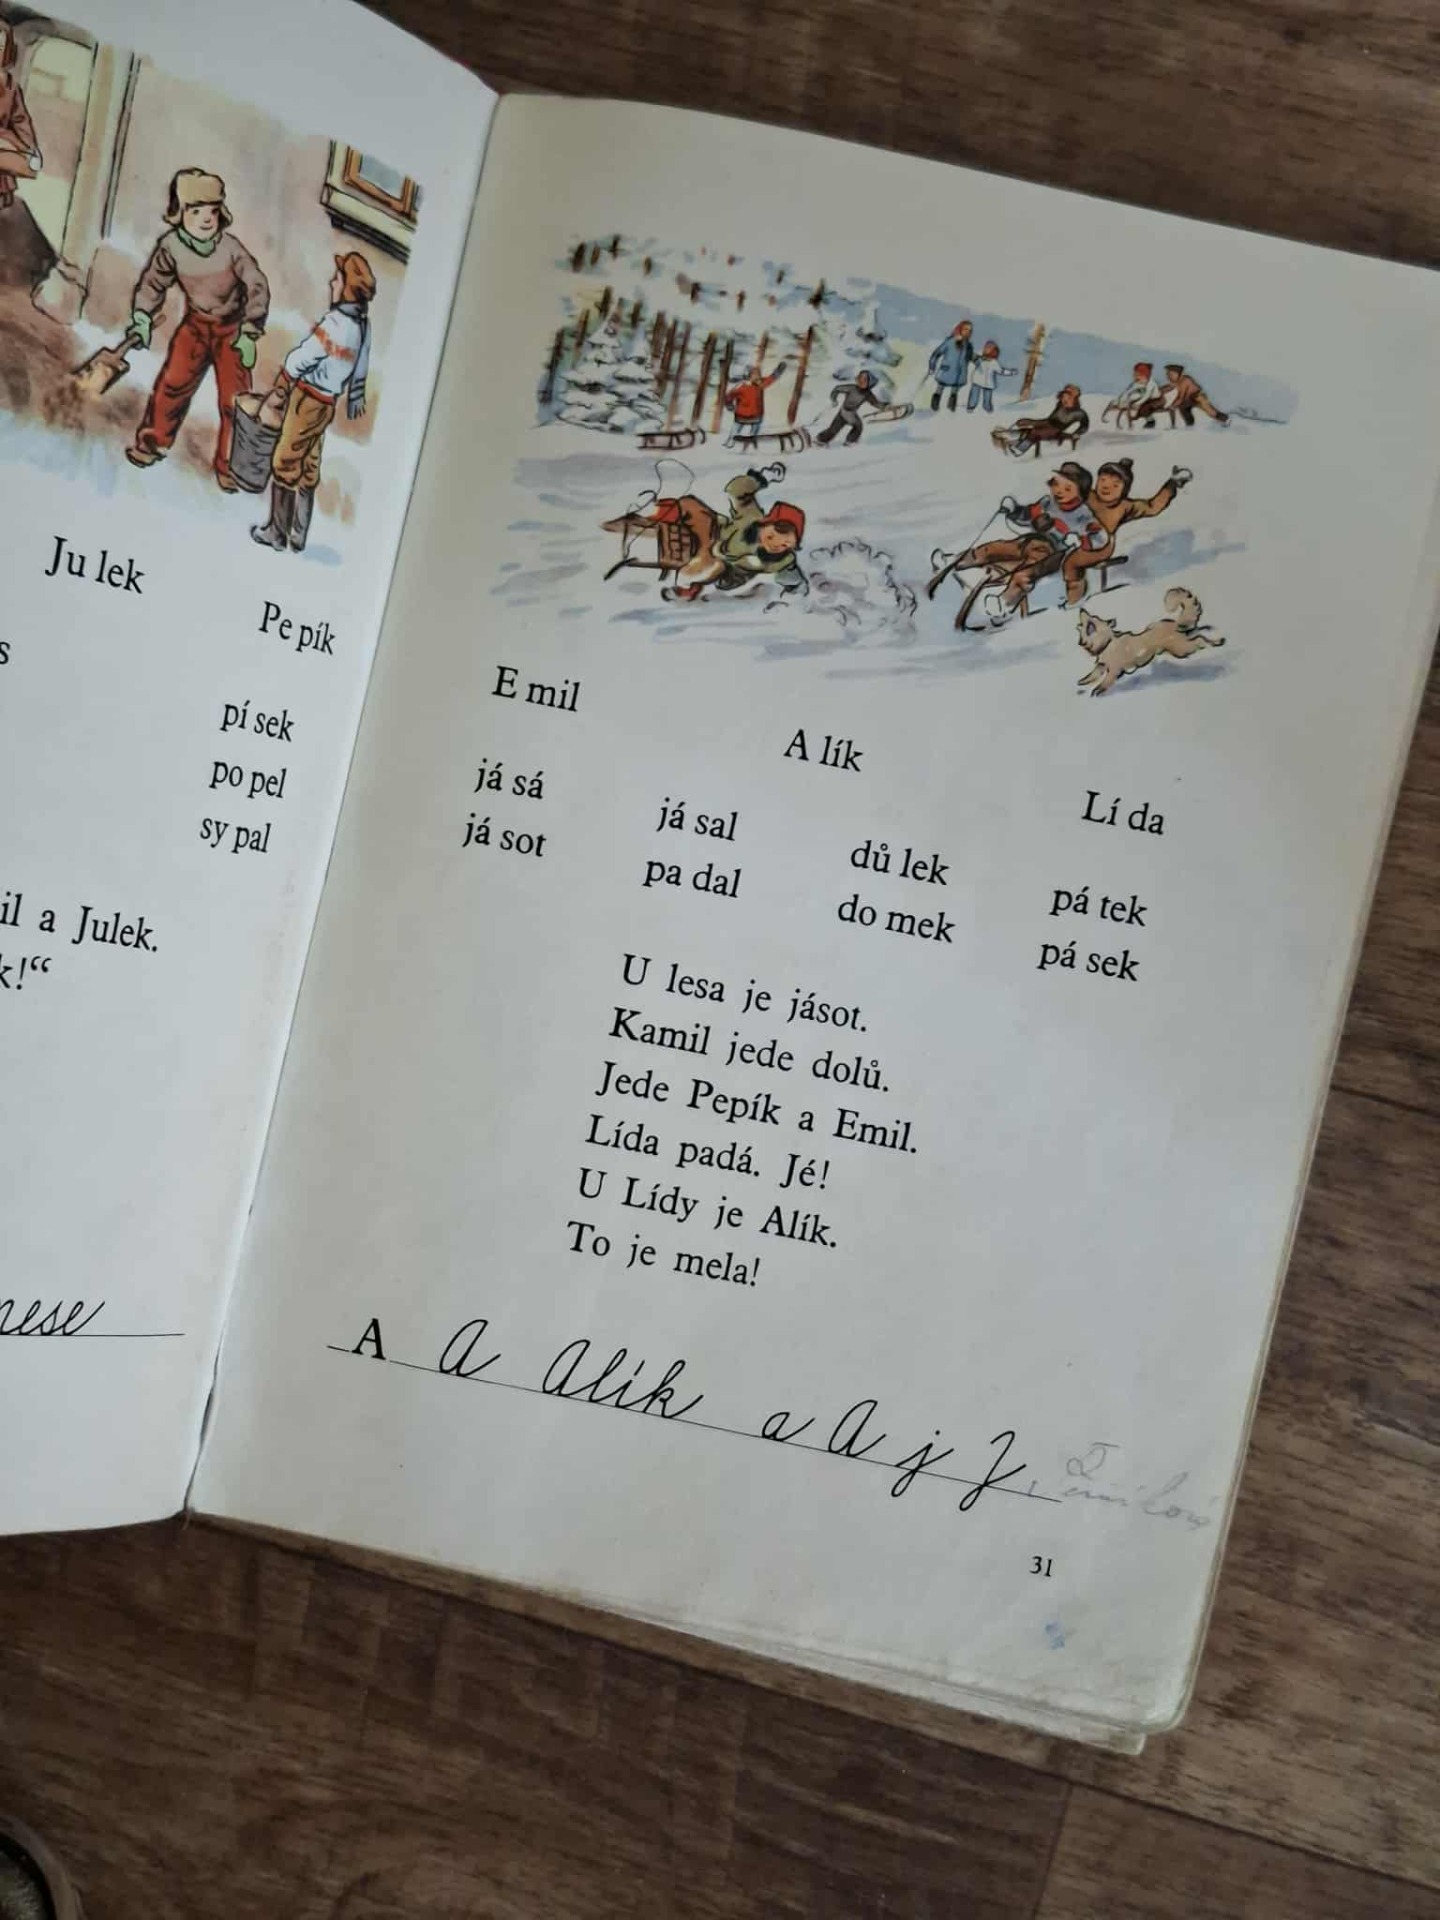 Ju lek
Pe pík
s
pí sek
po pel
sy pal
il a Julek.
k!“
nese
E mil
A lík
Lí da
já sá já sal dů lek pá tek
já sot pa dal do mek pá sek
U lesa je jásot.
Kamil jede dolů.
Jede Pepík a Emil.
Lída padá. Jé!
U Lídy je Alík.
To je mela!
A A Alík a A j J
31